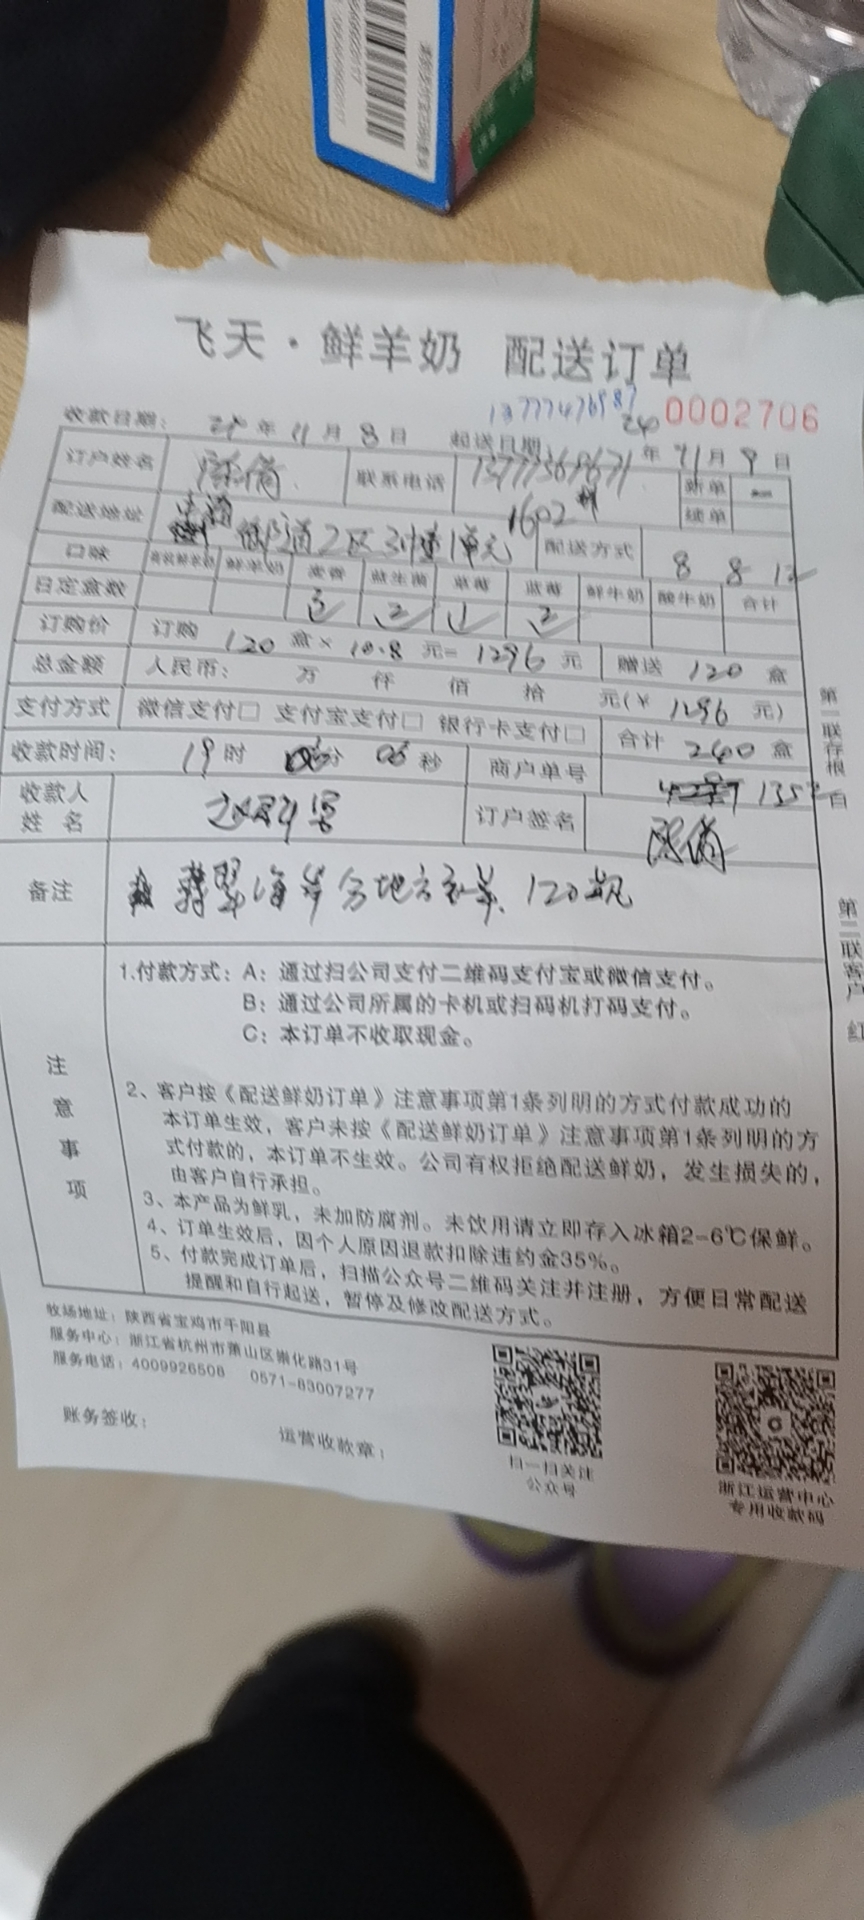 飞天·鲜羊奶 配送订单
13777476987
0002706
收款日期: 24年11月8日 起送日期: 24年11月9日
订户姓名 陈倩 联系电话 新单
续单
配送地址 街道2区3幢1单元 1602 配送方式 8 8 12
口味 鲜羊奶 麦香 益生菌 草莓 蓝莓 鲜牛奶 酸牛奶 合计
日定盒数
订购价 订购 120 盒× 10.8 元= 1296 元 赠送 120 盒
总金额 人民币: 万 仟 佰 拾 元(¥ 1296 元)
支付方式 微信支付□ 支付宝支付□ 银行卡支付□ 合计 240 盒
收款时间: 19时 分 06秒 商户单号
收款人姓名 订户签名 陈倩
备注 翡翠海岸 120瓶
注意事项
1.付款方式: A: 通过扫公司支付二维码支付宝或微信支付。
B: 通过公司所属的卡机或扫码机打码支付。
C: 本订单不收取现金。
2、客户按《配送鲜奶订单》注意事项第1条列明的方式付款成功的
本订单生效，客户未按《配送鲜奶订单》注意事项第1条列明的方
式付款的，本订单不生效。公司有权拒绝配送鲜奶，发生损失的，
由客户自行承担。
3、本产品为鲜乳，未加防腐剂。未饮用请立即存入冰箱2-6℃保鲜。
4、订单生效后，因个人原因退款扣除违约金35%。
5、付款完成订单后，扫描公众号二维码关注并注册，方便日常配送
提醒和自行起送，暂停及修改配送方式。
牧场地址: 陕西省宝鸡市千阳县
服务中心: 浙江省杭州市萧山区崇化路31号
服务电话: 4009926508 0571-83007277
账务签收: 运营收款章:
扫一扫关注
公众号
浙江运营中心
专用收款码
第一联存根 白
第二联客户 红